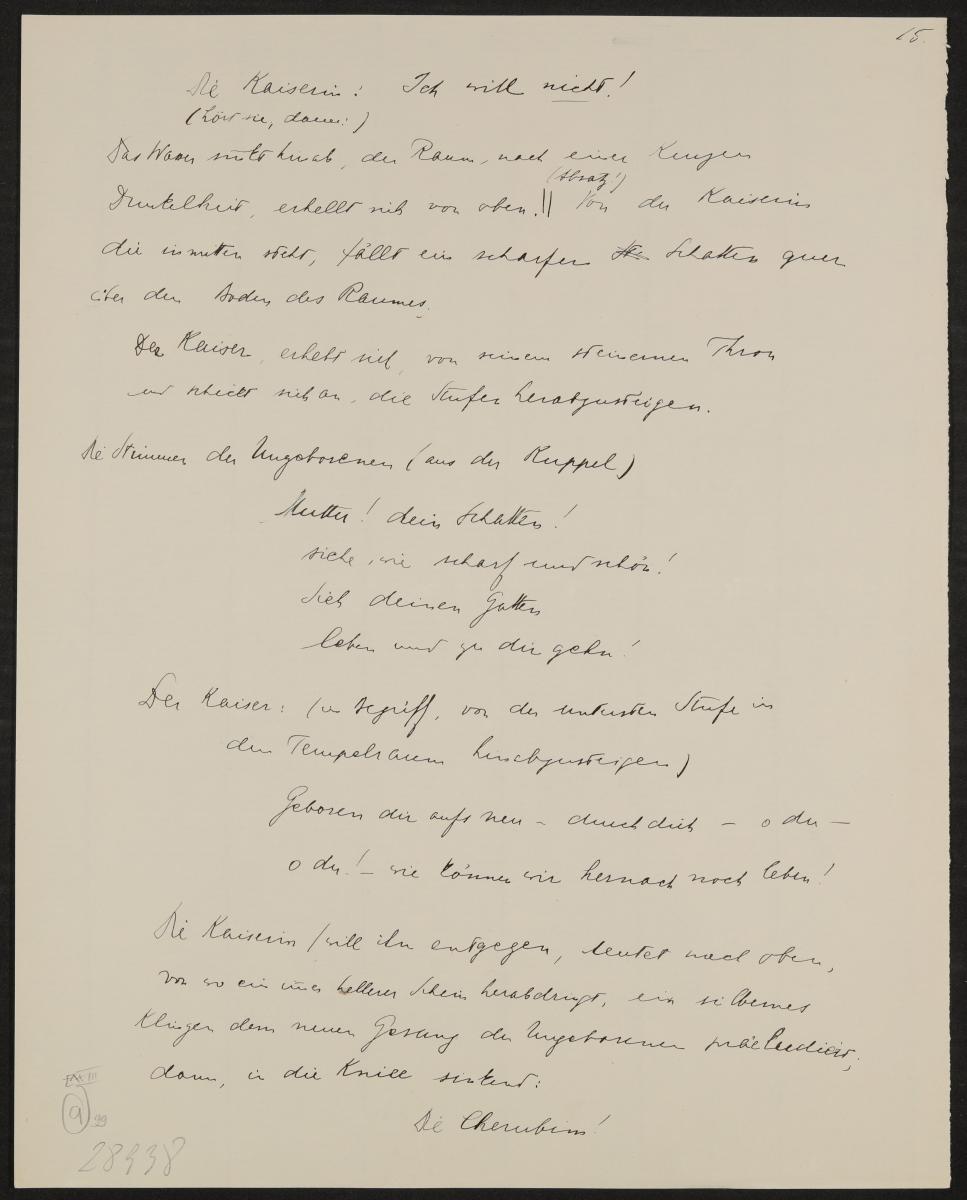 15.
Die Kaiserin: Ich will nicht!
(hört sie, dann:)
Das Wasser sinkt hinab, der Raum, nach einer kurzen
(Absatz!)
Dunkelheit, erhellt sich von oben. || Von der Kaiserin
die inmitten steht, fällt ein scharfer Schatten quer
über den Boden des Raumes.
Der Kaiser, erhebt sich, von seinem steinernen Thron
und schickt sich an, die Stufen herabzusteigen.
Die Stimmen der Ungeborenen (aus der Kuppel)
Mutter! dein Schatten!
siehe, wie scharf und schön!
Sieh deinen Gatten
leben und zu dir gehn!
Der Kaiser: (im Begriff, von der untersten Stufe in
den Tempelraum hinabzusteigen)
Geboren dir aufs neu – durch dich – o du –
o du! – wie können wir hernach noch leben!
Die Kaiserin (will ihm entgegen, deutet nach oben,
von wo ein hellerer Schein herabdringt, ein silbernes
Klingen dem neuen Gesang der Ungeborenen präludiert;
dann, in die Kniee sinkend:
Die Cherubim!
a 99
28938